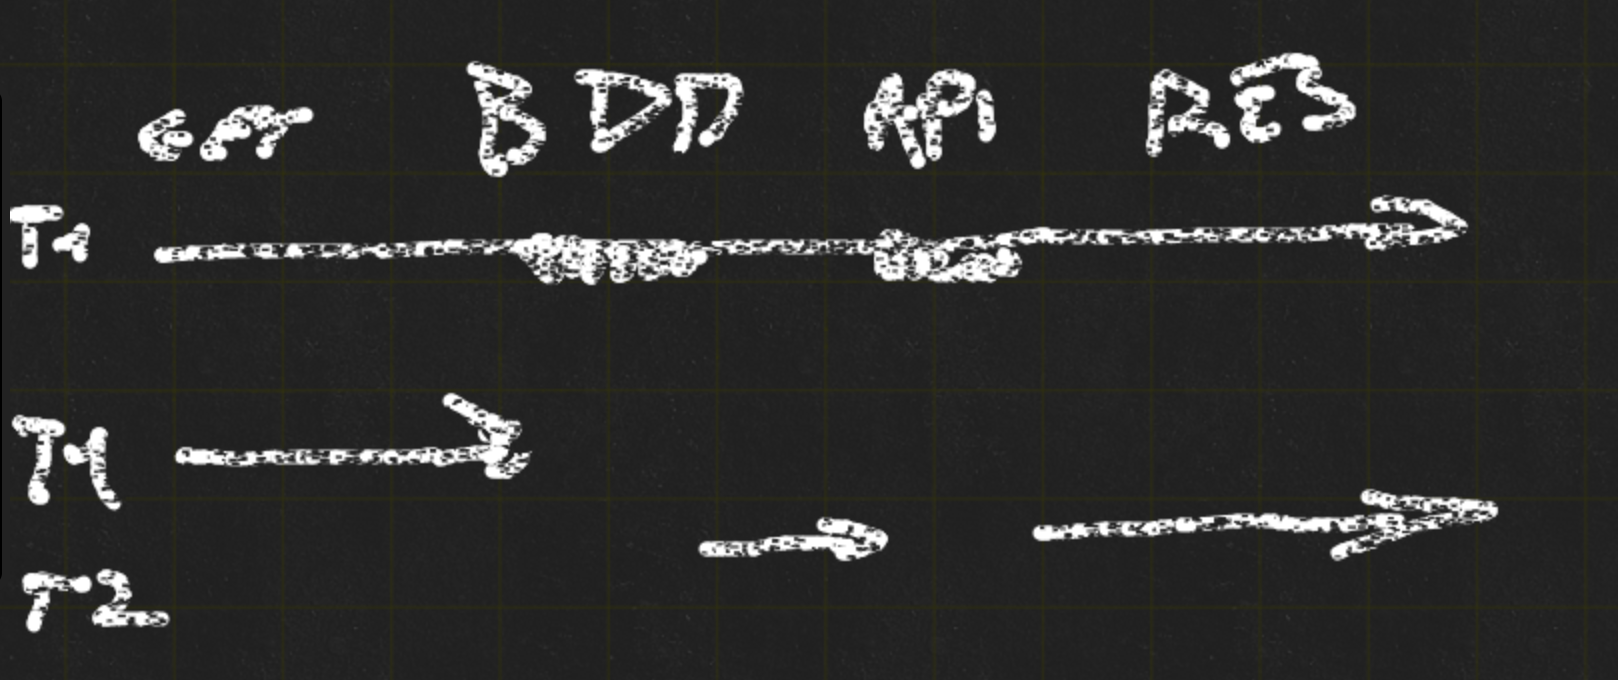 BDD API RES
T1
T1
T2